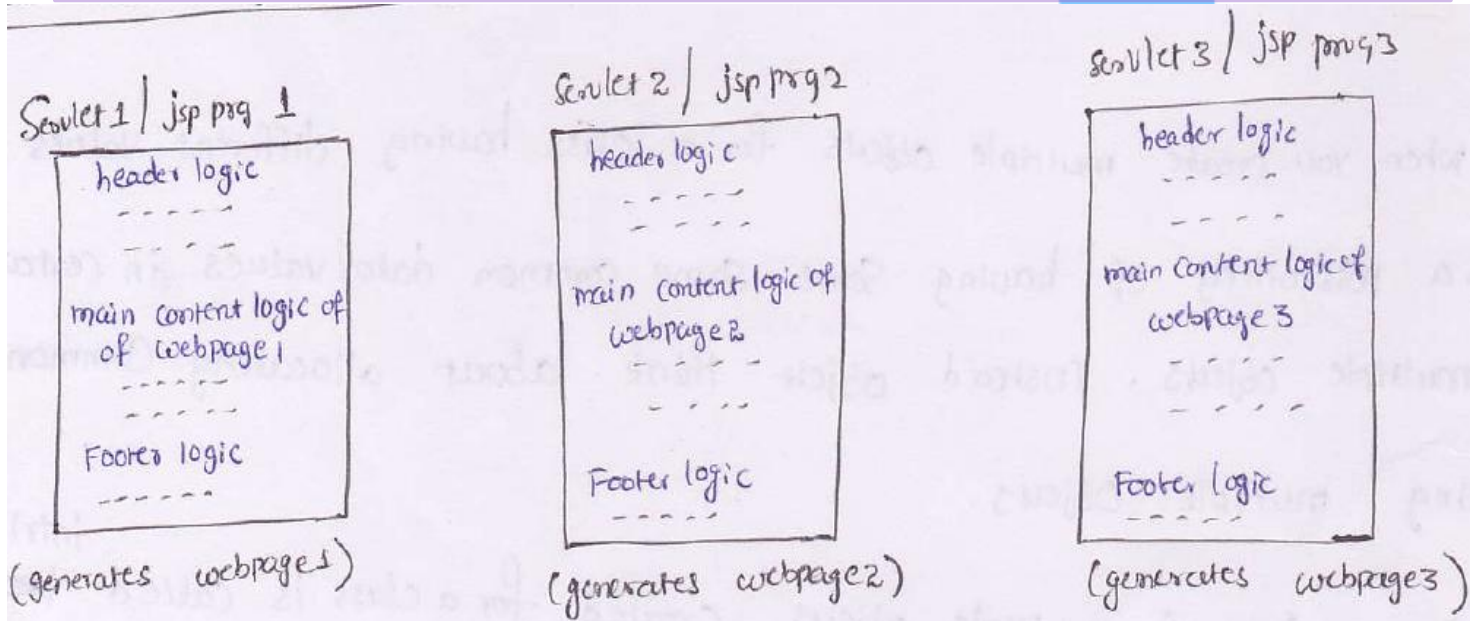 Servlet 1 / jsp prg 1
header logic
main content logic of
of webpage1
Footer logic
(generates webpage1)
Servlet 2 / jsp prg2
header logic
main content logic of
webpage2
Footer logic
(generates webpage2)
servlet 3 / jsp prog3
header logic
main content logic of
webpage 3
Footer logic
(generates webpage3)